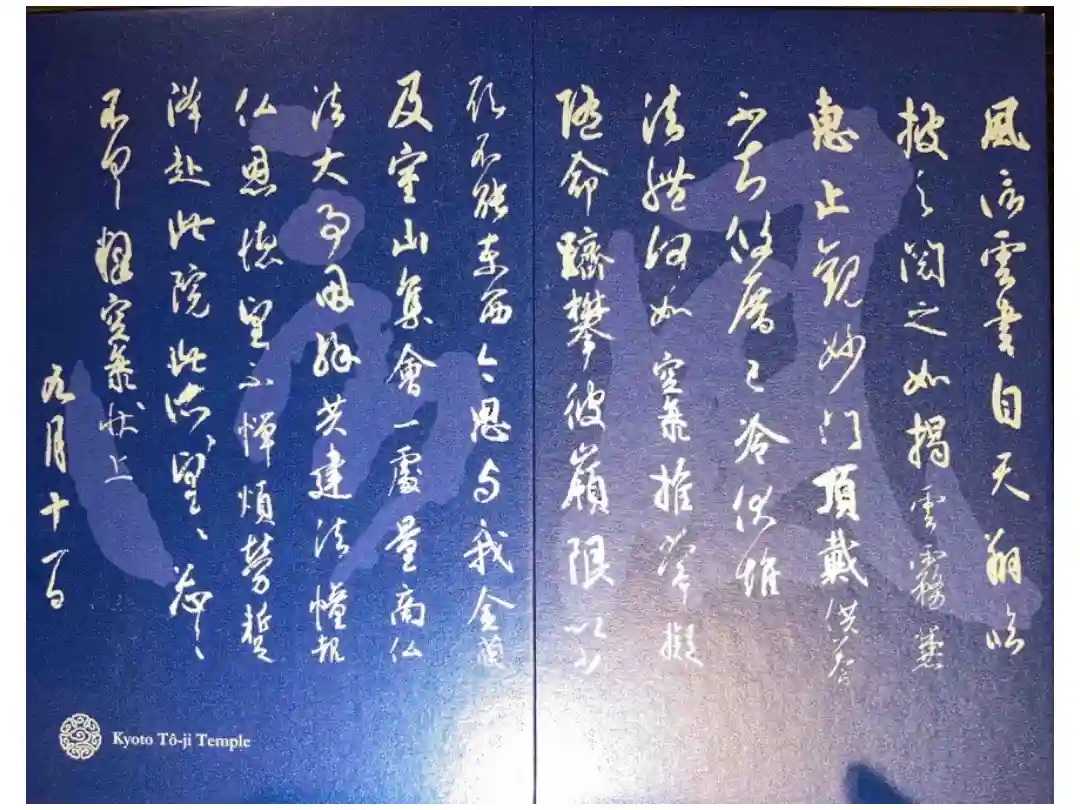 風信雲書自天翔臨
披之閲之如揭雲霧兼
恵止觀妙門頂戴供養
不知攸厝已冷伏惟
法體何如空海推常擬
隨命躋攀彼嶺限以少
願不能東西今思与我金蘭
及室山集會一處量商仏
法大事因縁共建法幢報
仏恩徳望不憚煩勞蹔
降赴此院此所望々忩々
不具釋空海状上
九月十一日
Kyoto Tô-ji Temple